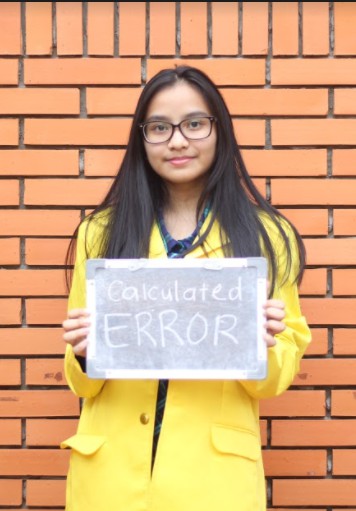 Calculated
ERROR